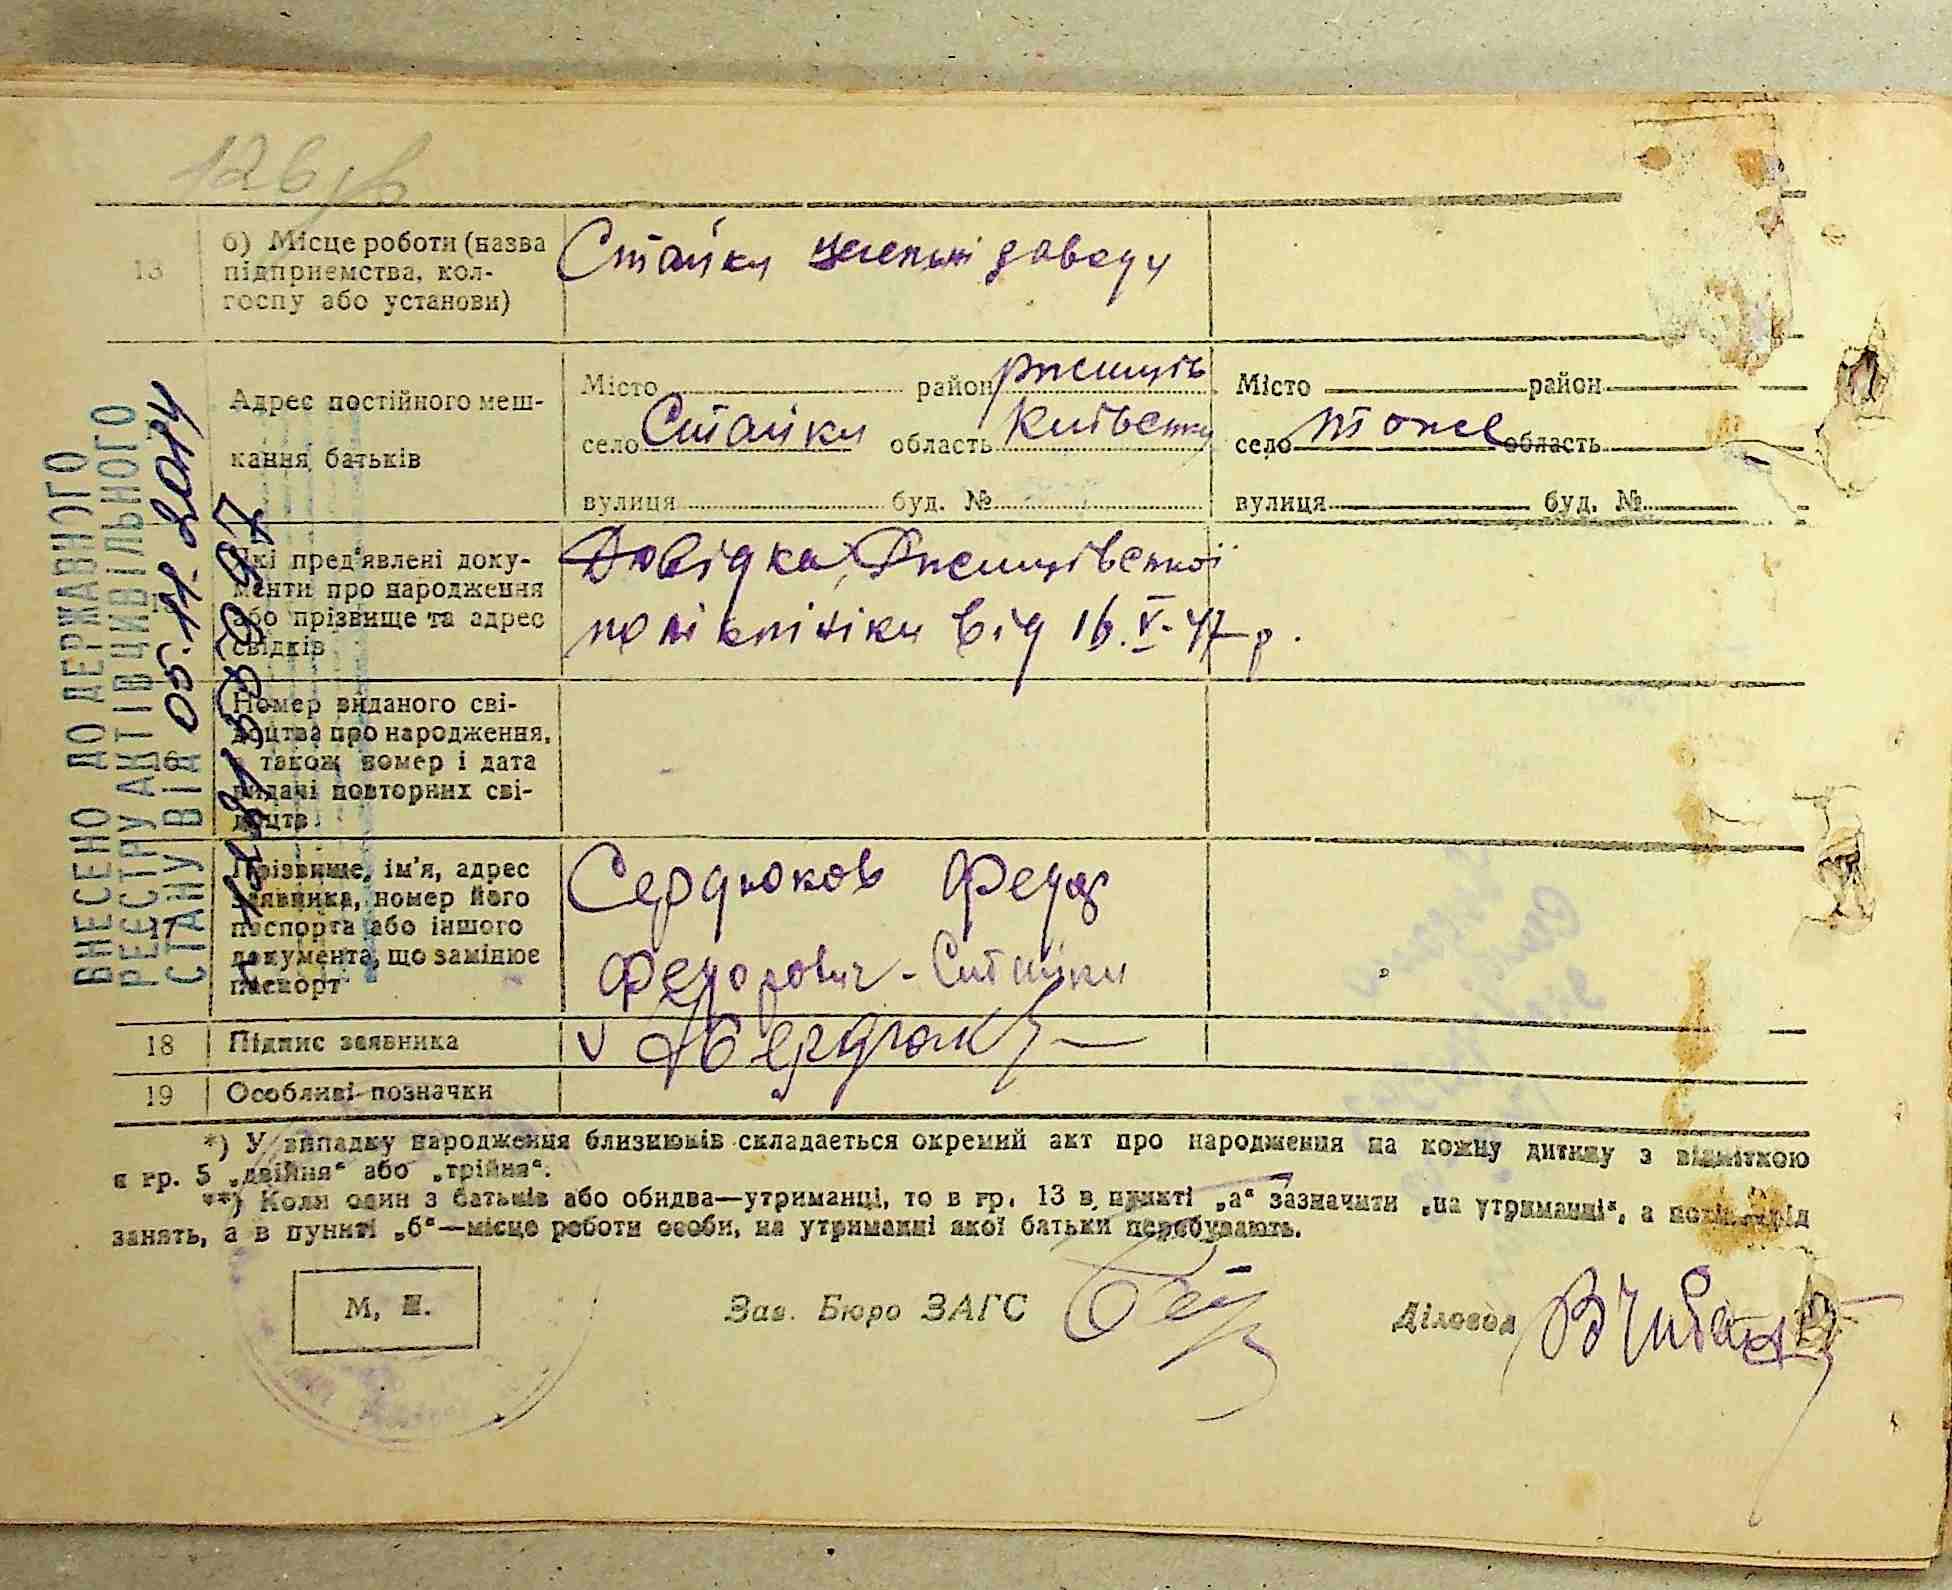 126
13
б) Місце роботи (назва
підприемства, кол-
госпу або установи)
Стайки цегельні заводи
Адрес постійного меш-
кання батьків
Місто район Ржищів
село Стайки область Київська
вулиця буд. №
Місто район
село тоже область
вулиця буд. №
Які пред'явлені доку-
менти про народження
або прізвище та адрес
свідків
Довідка Ржищівської
поліклініки від 16.V-47 р.
16
Номер виданого сві-
доцтва про народження,
а також номер і дата
видачі повторних сві-
доцтв
17
Прізвище, ім'я, адрес
заявника, номер його
паспорта або іншого
документа, що замінює
паспорт
Сердюков Федор
Федорович -
18
Підпис заявника
V
19
Особливі позначки
*) У випадку народження близнюків складається окремий акт про народження на кожну дитину з відміткою
в гр. 5 „двійня“ або „трійня“.
**) Коли один з батьків або обидва—утриманці, то в гр. 13 в пункті „а“ зазначити „на утриманні“, а
занять, а в пункті „б“—місце роботи особи, на утриманні якої батьки перебувають.
М, П.
Зав. Бюро ЗАГС
Діловод
ВНЕСЕНО ДО ДЕРЖАВНОГО
РЕЄСТРУ АКТІВ ЦИВІЛЬНОГО
СТАНУ ВІД 05.11.2014